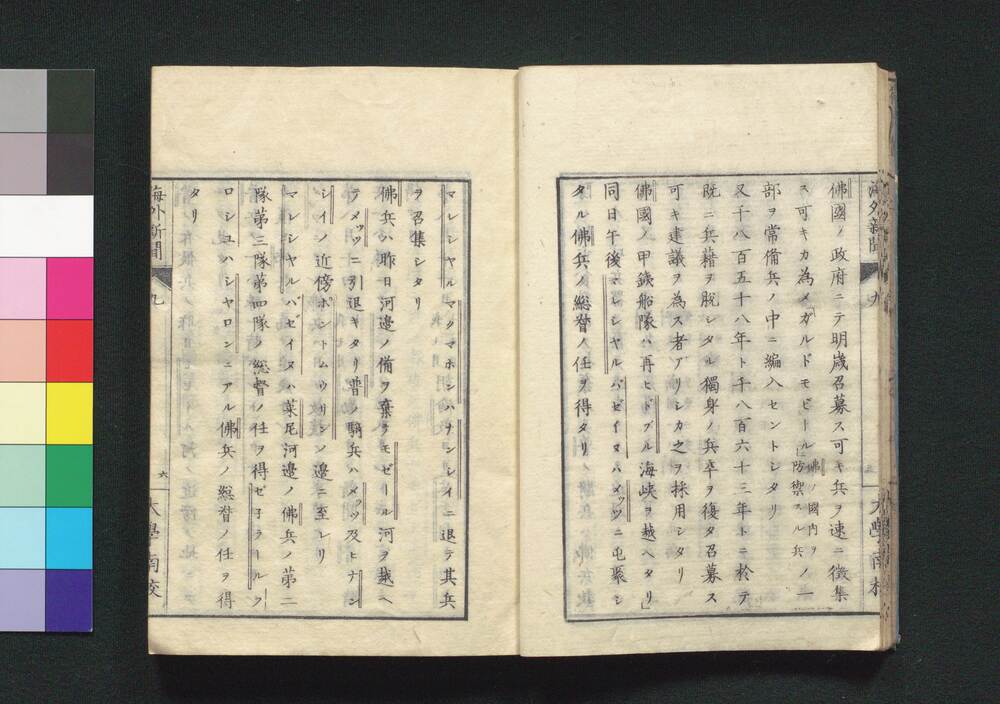 海外新聞
九
大學南校
佛國ノ政府ニテ明歳召募ス可キ兵ヲ速ニ徴集
ス可キカ為メガルドモビール佛ノ國内ヲ防禦スル兵ノ一
部ヲ常備兵ノ中ニ編入セントシタリ
又千八百五十八年ト千八百六十三年トニ於テ
既ニ兵藉ヲ脱シタル獨身ノ兵卒ヲ復タ召募ス
可キ建議ヲ為ス者アリシカ之ヲ採用シタリ
佛國ノ甲鐵船隊ハ再ヒドブル海峽ヲ越ヘタリ」
同日午後マレシヤルバゼイヌハメッツニ屯聚シ
タル佛兵ノ総督ノ任ヲ得タリ
マレシヤルマクマホンハナンシイニ退テ其兵
ヲ召集シタリ
佛兵ハ昨日河邉ノ備ヲ棄テモゼール河ヲ越ヘ
テメッツニ引退キタリ普ノ騎兵ハメッツ及ヒナン
シイノ近傍ポントムウソンノ邉ニ至レリ
マレシヤルバゼイヌハ菜尼河邉ノ佛兵ノ第二
隊第三隊第四隊ノ総督ノ任ヲ得ゼ子ラールフ
ロシユハシヤロンニアル佛兵ノ総督ノ任ヲ得
タリ
海外新聞
九
六
大學南校